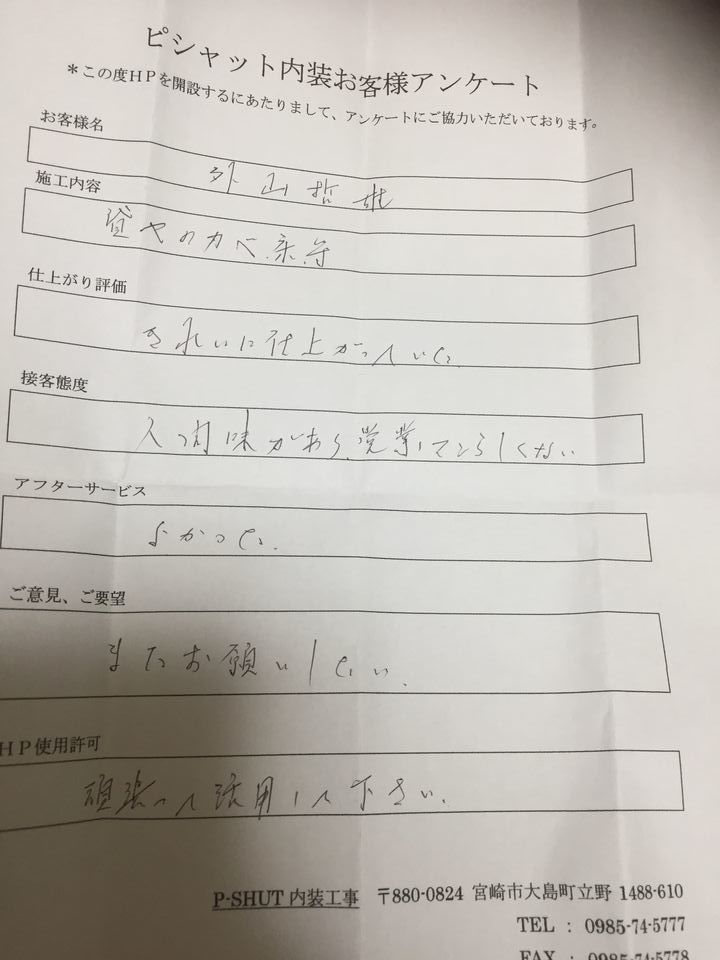 ピシャット内装お客様アンケート
＊この度ＨＰを開設するにあたりまして、アンケートにご協力いただいております。
お客様名
外山哲雄
施工内容
貸やのカベ
仕上がり評価
きれいに仕上がっていた。
接客態度
人間味があり、営業マンらしくない
アフターサービス
よかった。
ご意見、ご要望
またお願いしたい。
ＨＰ使用許可
頑張って活用して下さい。
P-SHUT 内装工事 〒880-0824 宮崎市大島町立野 1488-610
TEL : 0985-74-5777
FAX : 0985-74-5778